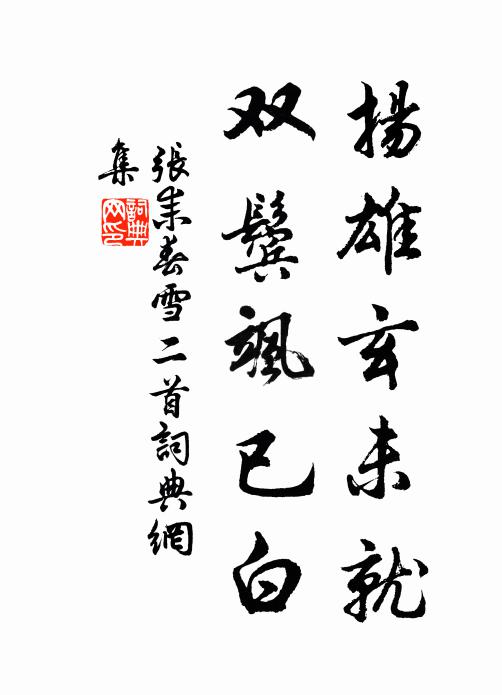 揚雄玄未就
双鬓颯已白
張耒春雪二首詞典網
集
詞典
网印